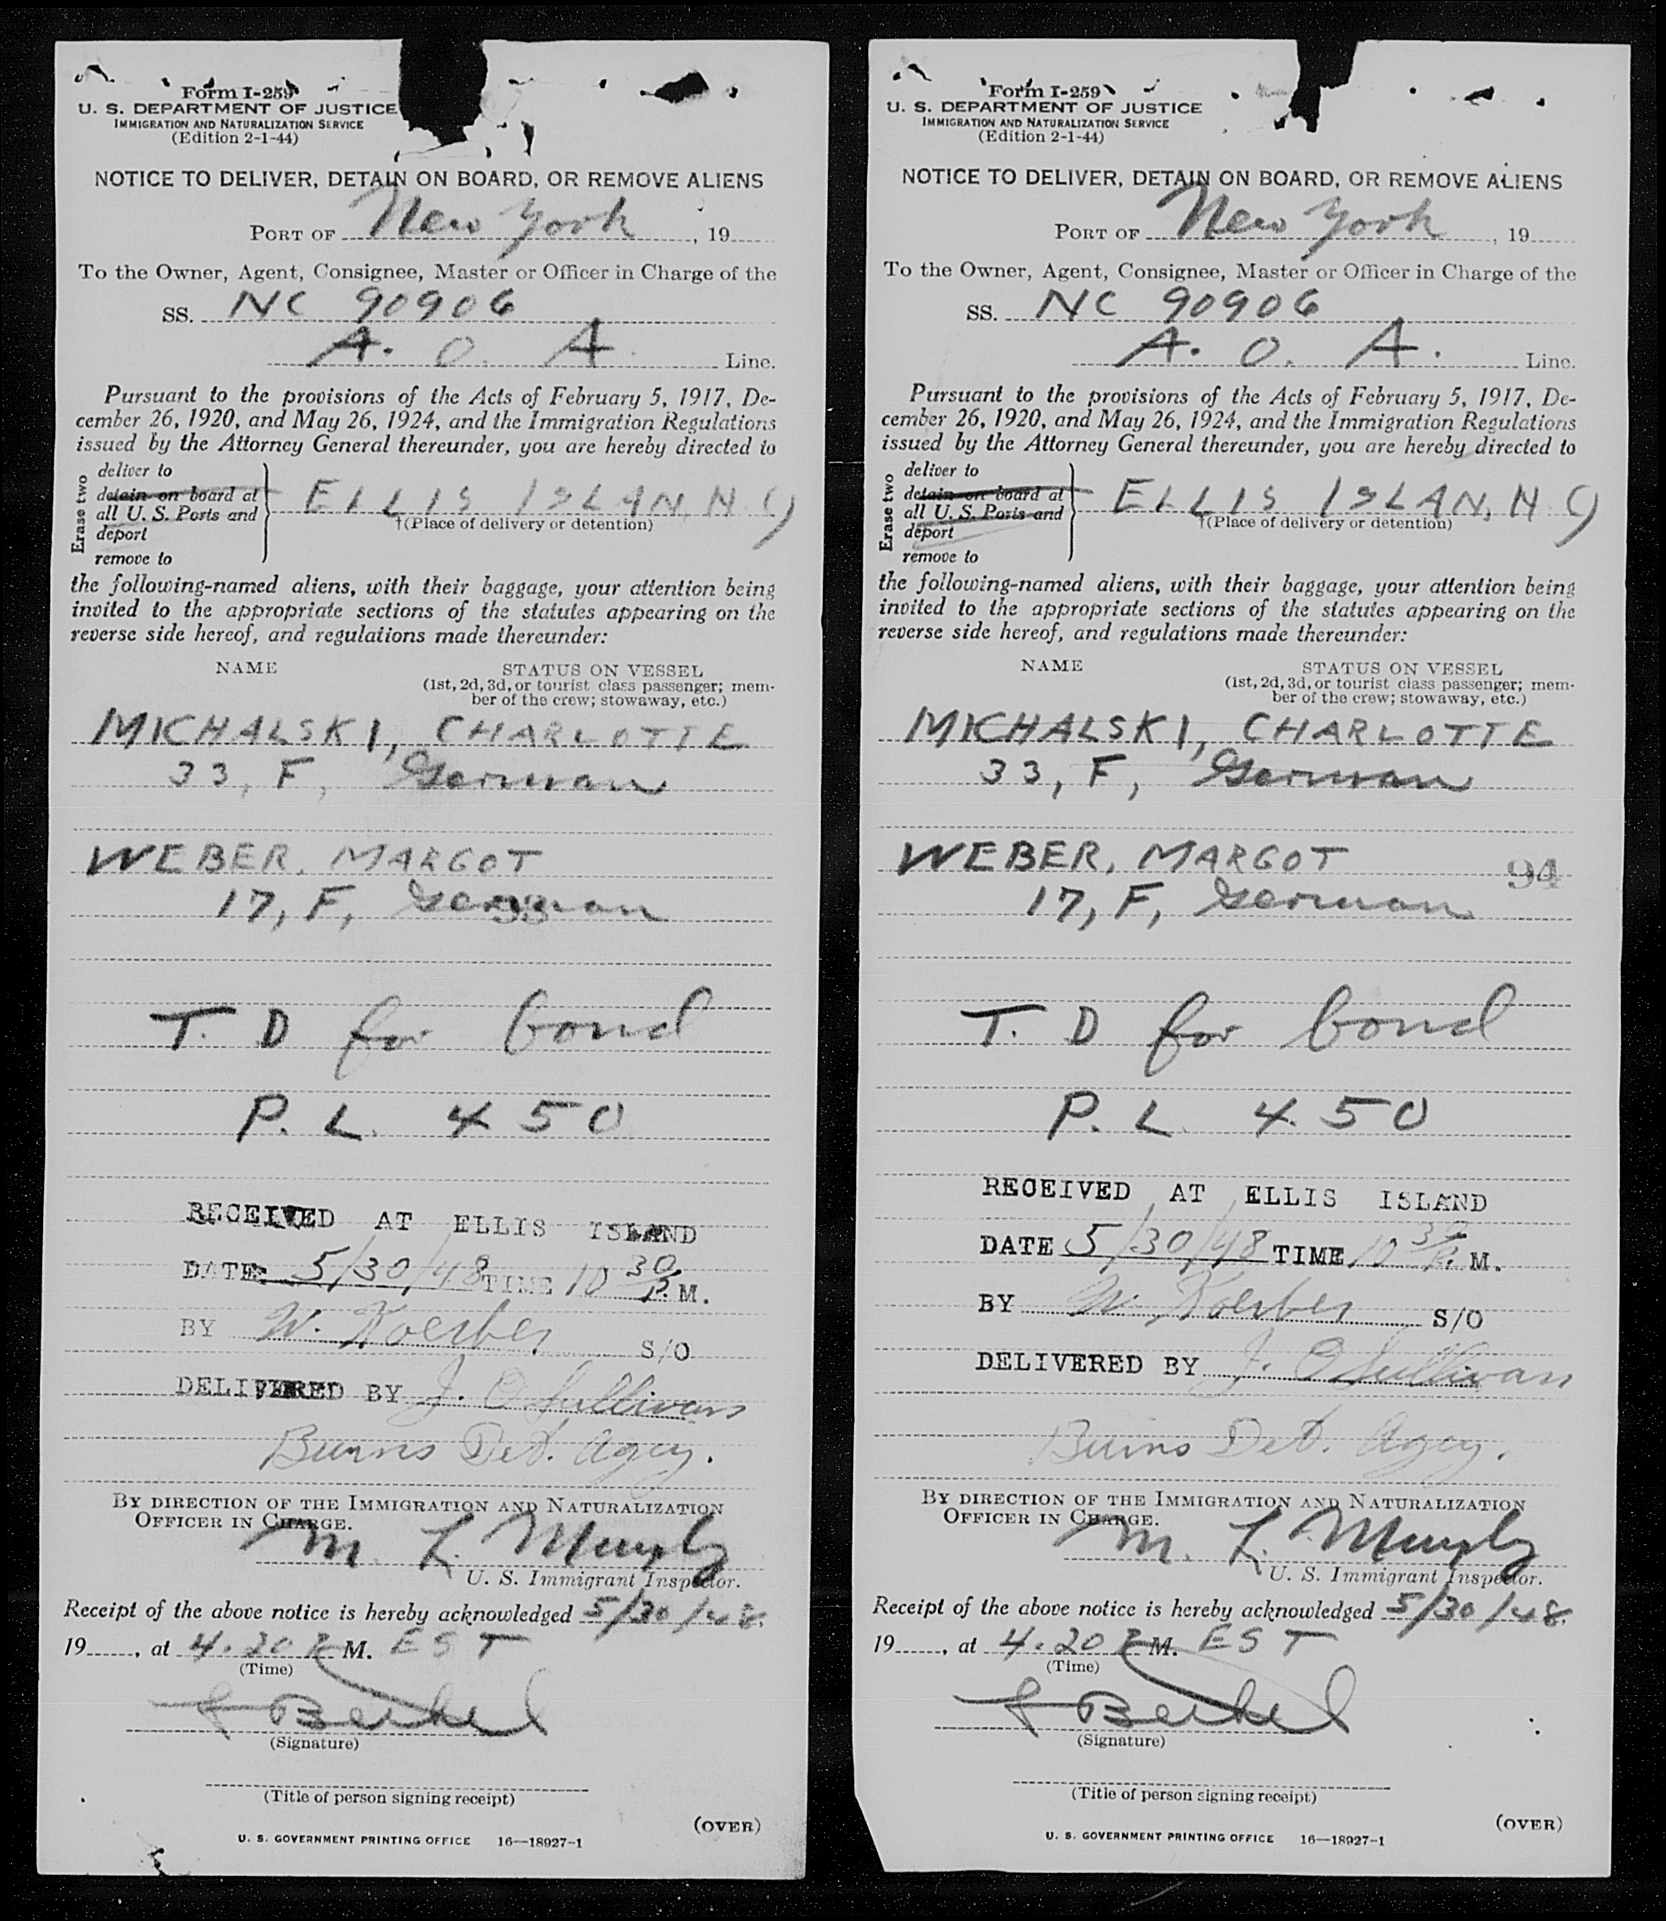 Form I-259
U. S. DEPARTMENT OF JUSTICE
IMMIGRATION AND NATURALIZATION SERVICE
(Edition 2-1-44)
NOTICE TO DELIVER, DETAIN ON BOARD, OR REMOVE ALIENS
PORT OF New York, 19
To the Owner, Agent, Consignee, Master or Officer in Charge of the
SS. NC 90906
A. O. A. Line.
Pursuant to the provisions of the Acts of February 5, 1917, De-
cember 26, 1920, and May 26, 1924, and the Immigration Regulations
issued by the Attorney General thereunder, you are hereby directed to
Erase two
deliver to
detain on board at
all U. S. Ports and
deport
remove to
ELLIS ISLAN, N.Y
†(Place of delivery or detention)
the following-named aliens, with their baggage, your attention being
invited to the appropriate sections of the statutes appearing on the
reverse side hereof, and regulations made thereunder:
NAME STATUS ON VESSEL
(1st, 2d, 3d, or tourist class passenger; mem-
ber of the crew; stowaway, etc.)
MICHALSKI, CHARLOTTE
33, F, German
WEBER, MARGOT
17, F, German
93
T. D for bond
P. L. 450
RECEIVED AT ELLIS ISLAND
DATE 5/30/48 TIME 10 30 P. M.
BY W. Koerber S/O
DELIVERED BY J. O'Sullivan
Burns Det. Agcy.
BY DIRECTION OF THE IMMIGRATION AND NATURALIZATION
OFFICER IN CHARGE.
M. L.
U. S. Immigrant Inspector.
Receipt of the above notice is hereby acknowledged 5/30/48,
19, at 4.20 P M. EST
(Time)
(Signature)
(Title of person signing receipt)
(OVER)
U. S. GOVERNMENT PRINTING OFFICE 16—18927-1
Form I-259
U. S. DEPARTMENT OF JUSTICE
IMMIGRATION AND NATURALIZATION SERVICE
(Edition 2-1-44)
NOTICE TO DELIVER, DETAIN ON BOARD, OR REMOVE ALIENS
PORT OF New York, 19
To the Owner, Agent, Consignee, Master or Officer in Charge of the
SS. NC 90906
A. O. A. Line.
Pursuant to the provisions of the Acts of February 5, 1917, De-
cember 26, 1920, and May 26, 1924, and the Immigration Regulations
issued by the Attorney General thereunder, you are hereby directed to
Erase two
deliver to
detain on board at
all U. S. Ports and
deport
remove to
ELLIS ISLAN, N.Y
†(Place of delivery or detention)
the following-named aliens, with their baggage, your attention being
invited to the appropriate sections of the statutes appearing on the
reverse side hereof, and regulations made thereunder:
NAME STATUS ON VESSEL
(1st, 2d, 3d, or tourist class passenger; mem-
ber of the crew; stowaway, etc.)
MICHALSKI, CHARLOTTE
33, F, German
WEBER, MARGOT 94
17, F, German
T. D for bond
P. L. 450
RECEIVED AT ELLIS ISLAND
DATE 5/30/48 TIME 10 30 P. M.
BY W. Koerber S/O
DELIVERED BY J. O'Sullivan
Burns Det. Agcy.
BY DIRECTION OF THE IMMIGRATION AND NATURALIZATION
OFFICER IN CHARGE.
M. L.
U. S. Immigrant Inspector.
Receipt of the above notice is hereby acknowledged 5/30/48,
19, at 4.20 P M. EST
(Time)
(Signature)
(Title of person signing receipt)
(OVER)
U. S. GOVERNMENT PRINTING OFFICE 16—18927-1